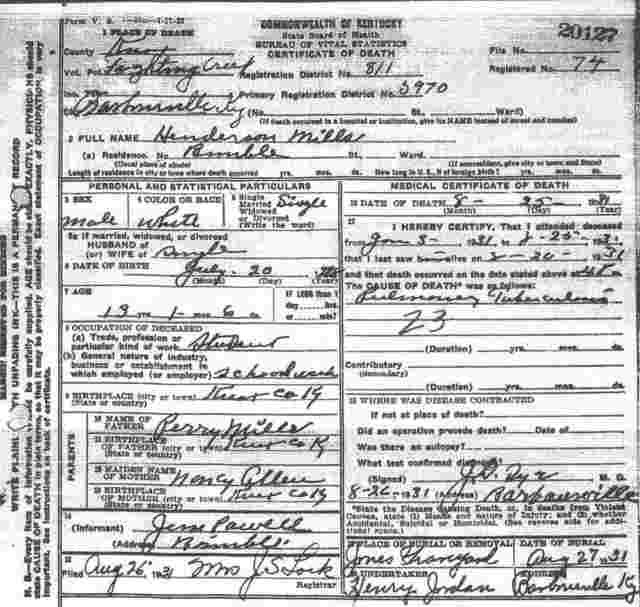 Form V. S.
COMMONWEALTH OF KENTUCKY
State Board of Health
BUREAU OF VITAL STATISTICS
CERTIFICATE OF DEATH
20127
1 PLACE OF DEATH
County Knox
File No.
Vot. Pct. Fighting Creek Registration District No. 811
Registered No. 74
Primary Registration District No. 5970
Barbourville Ky (No. St., Ward)
(If death occurred in a hospital or institution, give its NAME instead of street and number)
2 FULL NAME Henderson Mills
(a) Residence. No. Bimble St., Ward.
(Usual place of abode) (If nonresident, give city or town and State)
Length of residence in city or town where death occurred yrs. mos. ds. How long in U. S., if of foreign birth? yrs. mos. ds.
PERSONAL AND STATISTICAL PARTICULARS
3 SEX male
4 COLOR OR RACE white
5 Single Married Widowed or Divorced (Write the word) Single
5a If married, widowed, or divorced
HUSBAND of
(or) WIFE of Single
6 DATE OF BIRTH July 20
(Month) (Day) (Year)
7 AGE
13 yrs 1 mos 6 ds
IF LESS than 1 day, hrs. or min.?
8 OCCUPATION OF DECEASED
(a) Trade, profession or particular kind of work Student
(b) General nature of industry, business or establishment in which employed (or employer) school work
9 BIRTHPLACE (city or town) Knox Co Ky
(State or country)
PARENTS
10 NAME OF FATHER Perry Mills
11 BIRTHPLACE OF FATHER (city or town) Knox Co Ky
(State or country)
12 MAIDEN NAME OF MOTHER Nancy
13 BIRTHPLACE OF MOTHER (city or town) Knox Co Ky
(State or country)
14
(Informant) Jim Powell
(Address) Bimble
15
Filed Aug 26 1931 Mrs J. S. Lock
Registrar
MEDICAL CERTIFICATE OF DEATH
16 DATE OF DEATH 8 - 25 - 1931
(Month) (Day) (Year)
17 I HEREBY CERTIFY, That I attended deceased
from Jan 3 - 1931 to 8 - 25 - 1931
that I last saw alive on 8 - 20 - 1931
and that death occurred on the date stated above at
The CAUSE OF DEATH* was as follows:
Pulmonary Tuberculosis
23
(Duration) yrs. mos. ds.
Contributory
(Secondary)
(Duration) yrs. mos. ds.
18 WHERE WAS DISEASE CONTRACTED
If not at place of death?
Did an operation precede death? Date of
Was there an autopsy?
What test confirmed diagnosis?
(Signed) Dyr M. D.
8-26-1931 (Address) Barbourville
*State the Disease Causing Death, or, in deaths from Violent Causes, state (1) Means and nature of Injury; and (2) whether Accidental, Suicidal or Homicidal. (See reverse side for additional space.)
19 PLACE OF BURIAL OR REMOVAL Jones Graveyard
DATE OF BURIAL Aug 27 1931
20 UNDERTAKER Henry Jordan
ADDRESS Barbourville Ky